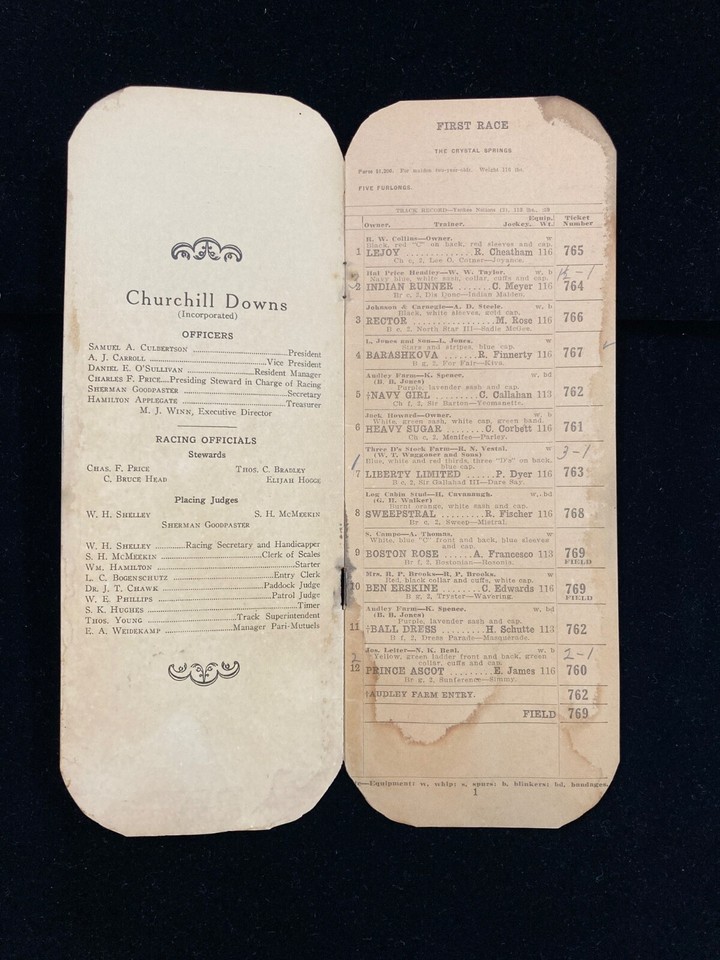 Churchill Downs
(Incorporated)
OFFICERS
SAMUEL A. CULBERTSON ........ President
A. J. CARROLL ........ Vice President
DANIEL E. O'SULLIVAN ........ Resident Manager
CHARLES F. PRICE....Presiding Steward in Charge of Racing
SHERMAN GOODPASTER ........ Secretary
HAMILTON APPLEGATE ........ Treasurer
M. J. WINN, Executive Director
RACING OFFICIALS
Stewards
CHAS. F. PRICE THOS. C. BRADLEY
C. BRUCE HEAD ELIJAH HOGGE
Placing Judges
W. H. SHELLEY S. H. MCMEEKIN
SHERMAN GOODPASTER
W. H. SHELLEY ........ Racing Secretary and Handicapper
S. H. MCMEEKIN ........ Clerk of Scales
WM. HAMILTON ........ Starter
L. C. BOGENSCHUTZ ........ Entry Clerk
DR. J. T. CHAWK ........ Paddock Judge
W. E. PHILLIPS ........ Patrol Judge
S. K. HUGHES ........ Timer
THOS. YOUNG ........ Track Superintendent
E. A. WEIDEKAMP ........ Manager Pari-Mutuels
FIRST RACE
THE CRYSTAL SPRINGS
For maiden two-year-olds. Weight 116 lbs.
FIVE FURLONGS.
TRACK RECORD
Equip. Ticket
Owner. Trainer. Jockey. Wt. Number
R. W. Collins—Owner. w
Black, red "C" on back, red sleeves and cap.
1 LEJOY ........ R. Cheatham 116 765
Ch c, 2, Lee O. Cotner—Joyance.
Hal Price Headley—W. W. Taylor. w, b
Navy blue, white sash, collar, cuffs and cap.
2 INDIAN RUNNER ........ C. Meyer 116 764
Br c, 2, Dis Donc—Indian Maiden.
Johnson & Carnegie—A. D. Steele. w
Black, white sleeves, gold cap.
3 RECTOR ........ M. Rose 116 766
B c, 2, North Star III—Sadie McGee.
L. Jones and Son—L. Jones. w
Stars and stripes, blue cap.
4 BARASHKOVA ........ R. Finnerty 116 767
B g, 2, For Fair—Kiva.
Audley Farm—K. Spence. w, bd
(B. B. Jones)
Purple, lavender sash and cap.
5 †NAVY GIRL ........ C. Callahan 113 762
Ch f, 2, Sir Barton—Yeomanette.
Jock Howard—Owner. w, b
White, green sash, white cap, green band.
6 HEAVY SUGAR ........ C. Corbett 116 761
Ch c, 2, Menifee—Parley.
Three D's Stock Farm—R. N. Vestal. w
(W. T. Waggoner and Sons) 3-1
Blue, white and red thirds, three "D's" on back,
blue cap.
1
7 LIBERTY LIMITED ........ P. Dyer 116 763
B c, 2, Sir Gallahad III—Dare Say.
Log Cabin Stud—H. Cavanaugh. w, bd
(G. H. Walker)
Burnt orange, white sash and cap.
8 SWEEPSTRAL ........ R. Fischer 116 768
Br c, 2, Sweep—Mistral.
S. Campo—A. Thomas. w
White, blue "C" front and back, blue sleeves
and cap.
9 BOSTON ROSE ........ A. Francesco 113 769
FIELD
Br f, 2, Bostonian—Rosonia.
Mrs. R. P. Brooks—R. P. Brooks. w
Red, black collar and cuffs, white cap.
10 BEN ERSKINE ........ C. Edwards 116 769
FIELD
B g, 2, Tryster—Wavering.
Audley Farm—K. Spence. w, bd
(B. B. Jones)
Purple, lavender sash and cap.
11 †BALL DRESS ........ H. Schutte 113 762
B f, 2, Dress Parade—Masquerade.
Jos. Leiter—N. K. Beal. w, b
2 2-1
Yellow, green ladder front and back, green
collar, cuffs and cap.
12 PRINCE ASCOT ........ E. James 116 760
Br g, 2, Sunference—Simmy.
†AUDLEY FARM ENTRY. 762
FIELD 769
Equipment: w, whip; s, spurs; b, blinkers; bd, bandages.
1